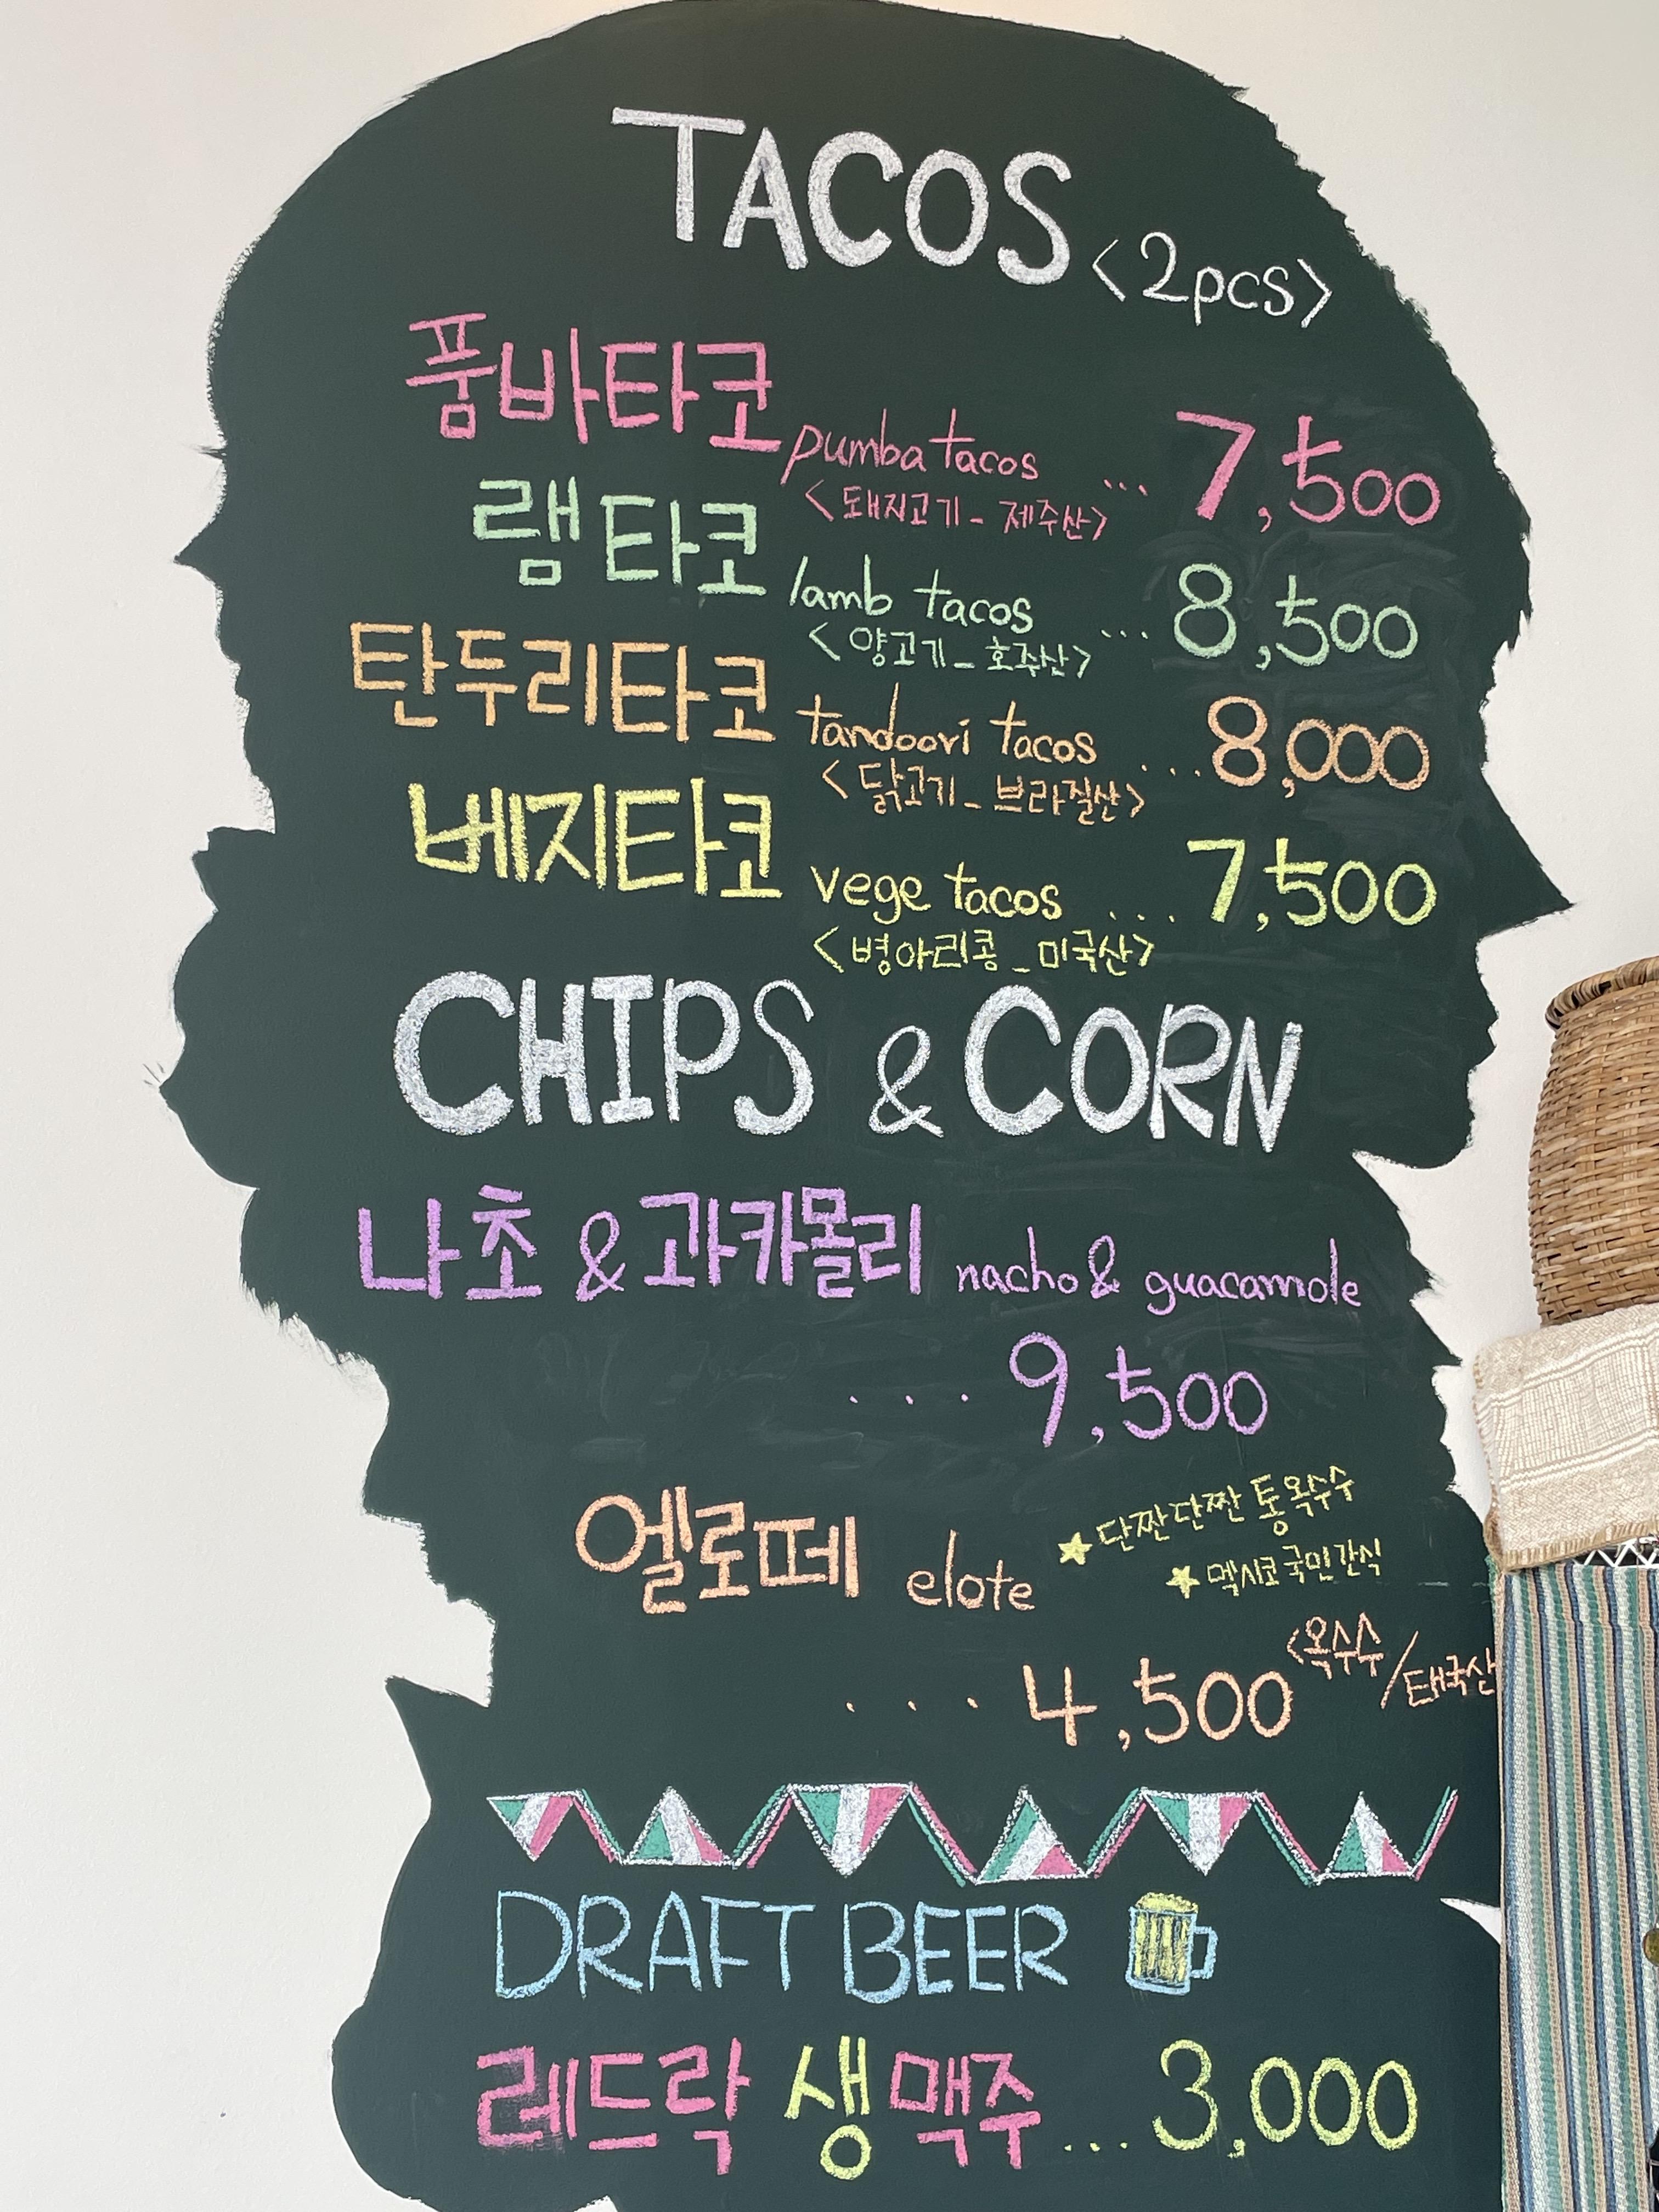 TACOS <2pcs>
품바타코 pumba tacos ... 7,500
<돼지고기_제주산>
램타코 lamb tacos ... 8,500
<양고기_호주산>
탄두리타코 tandoori tacos ... 8,000
<닭고기_브라질산>
베지타코 vege tacos .... 7,500
<병아리콩_미국산>
CHIPS & CORN
나초 & 과카몰리 nacho & guacamole
... 9,500
엘로떼 elote
★단짠단짠 통옥수수
★멕시코 국민간식
... 4,500 <옥수수/태국산
DRAFT BEER
레드락 생맥주 ... 3,000